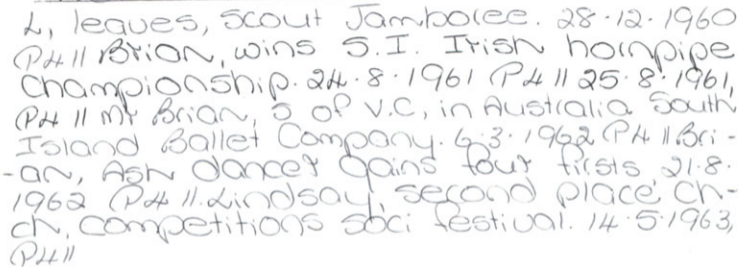 L, leaves, Scout Jamboree. 28.12.1960
P4 11 Brian, wins S.I. Irish hornpipe
Championship. 24.8.1961 P4 11 25.8.1961,
P4 11 Mr Brian, S of V.C, in Australia South
Island Ballet Company. 6.3.1962 P4 11 Bri-
-an, Ash dancer gains four firsts 21.8.
1962 P4 11. Lindsay, second place Ch-
ch, Competitions soci festival. 14.5.1963,
P4 11